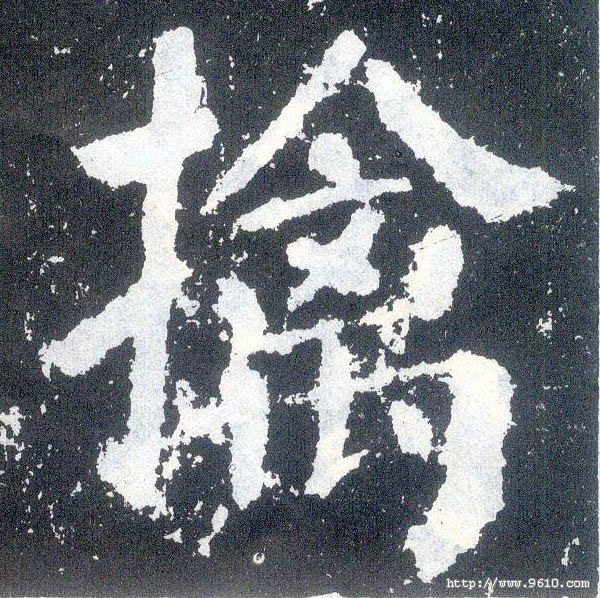 擒
http://www.9610.com/